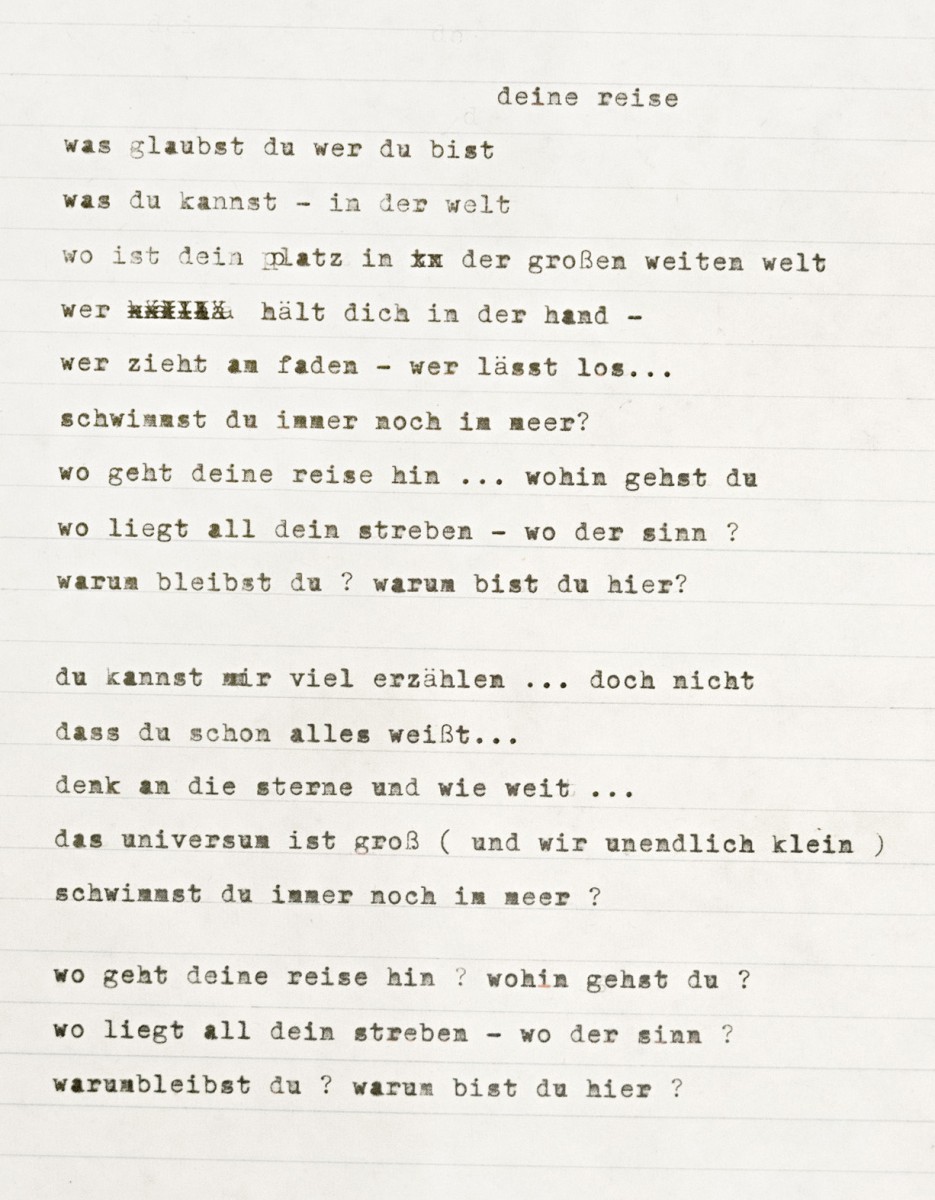 deine reise
was glaubst du wer du bist
was du kannst - in der welt
wo ist dein platz in der großen weiten welt
wer hält dich in der hand -
wer zieht am faden - wer lässt los...
schwimmst du immer noch im meer?
wo geht deine reise hin ... wohin gehst du
wo liegt all dein streben - wo der sinn ?
warum bleibst du ? warum bist du hier?
du kannst mir viel erzählen ... doch nicht
dass du schon alles weißt...
denk an die sterne und wie weit ...
das universum ist groß ( und wir unendlich klein )
schwimmst du immer noch im meer ?
wo geht deine reise hin ? wohin gehst du ?
wo liegt all dein streben - wo der sinn ?
warumbleibst du ? warum bist du hier ?